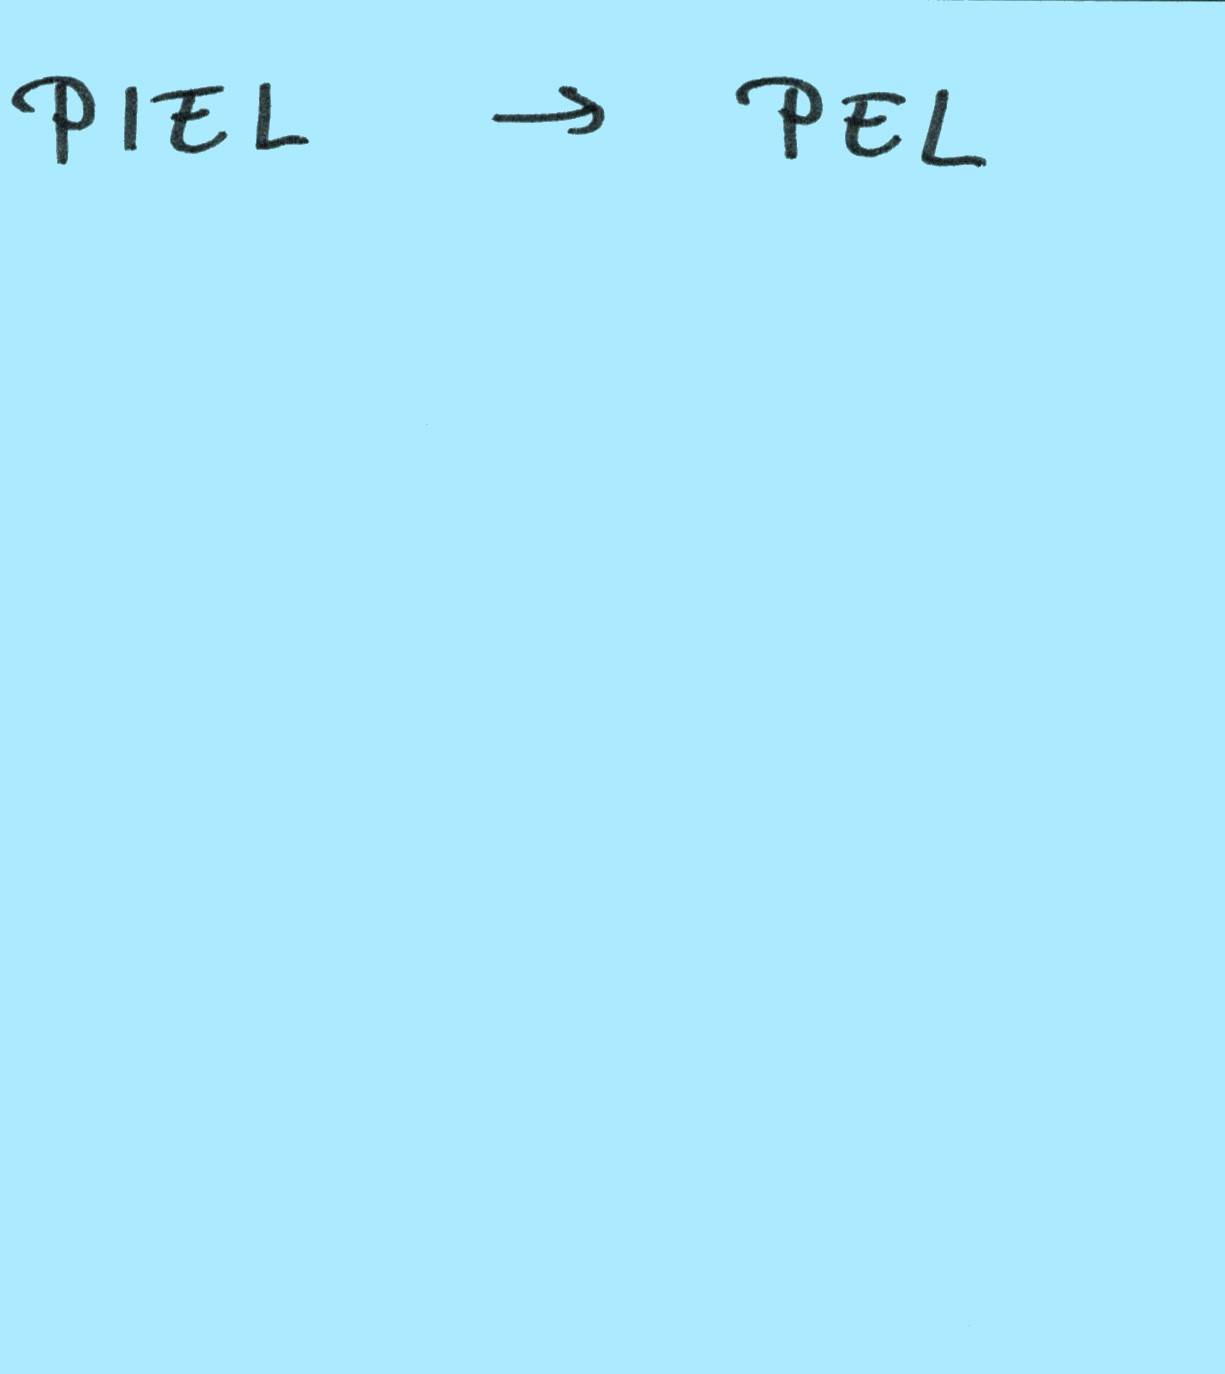 PIEL → PEL